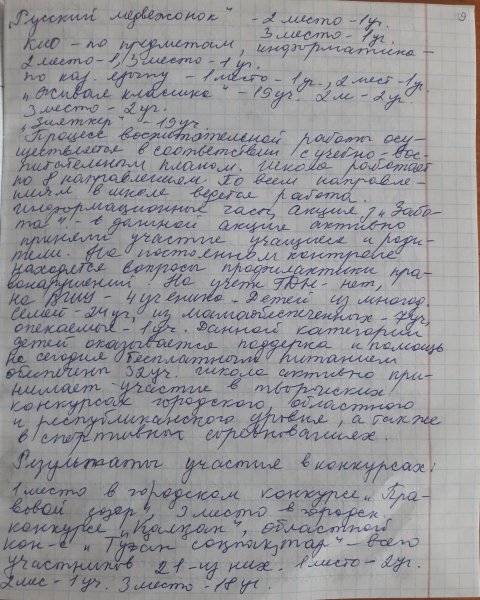 9
„Русский медвежонок" - 2 место - 1 уч.
3 место - 1 уч.
КИО - по предметам, информатика -
2 место - 1, 3 место - 1 уч.
по каз. языку - 1 место - 1 уч., 2 мест - 1 уч.
„Живая классика" - 19 уч. 2 м - 2 уч.
3 место - 2 уч.
„Зияткер" - 19 уч.
Процесс воспитательной работы осу-
ществляется в соответствии с учебно-вос-
питательным планом. Школа работает
по 8 направлениям. По всем направле-
ниям в школе ведется работа.
информационные часы, акция, „Забо-
та" - в данной акции активно
приняли участие учащиеся и роди-
тели. На постоянном контроле
находятся вопросы профилактики пра-
вонарушений. На учете ГЮП - нет,
на ВШУ - 4 ученика. Детей из многод.
семей - 24 уч, из малообеспеченных - 7 уч,
опекаемые - 1 уч. Данной категории
детей оказывается поддержка и помощь
На сегодня бесплатным питанием
обеспечены 32 уч. Школа активно при-
нимает участие в творческих
конкурсах городского, областного
и республиканского уровня, а также
в спортивных соревнованиях.
Результаты участия в конкурсах:
1 место в городском конкурсе „Пра-
вовой дозор", 3 место в городск.
конкурсе „Қалқан", областной
кон-с „Тұған соқпақтар" - всего
участников 21 - из них. 1 место - 2 уч.
2 мес - 1 уч. 3 место - 18 уч.